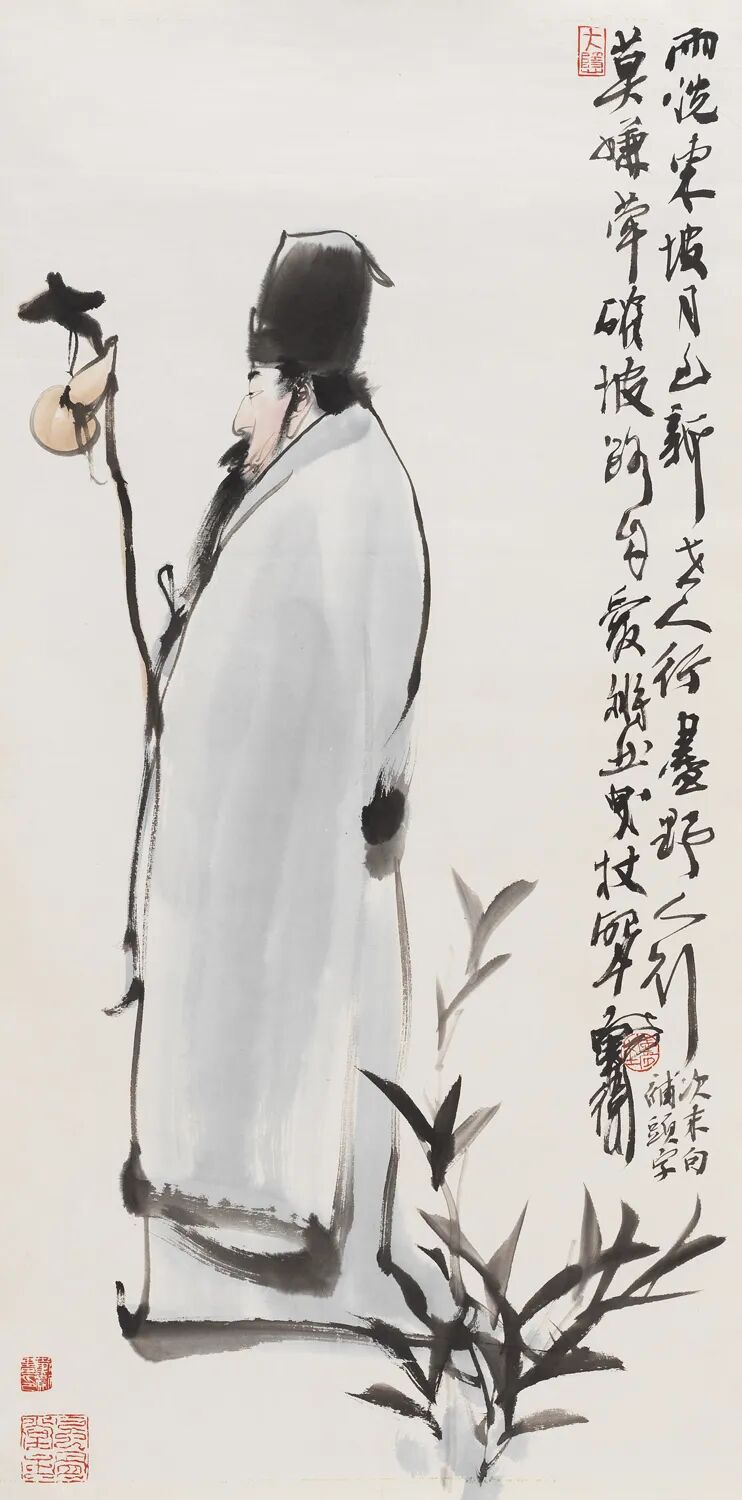 雨洗東坡月色新市人行盡野人行
莫嫌犖確坡路自愛然曳杖聲
次末句
補頭字
大隱